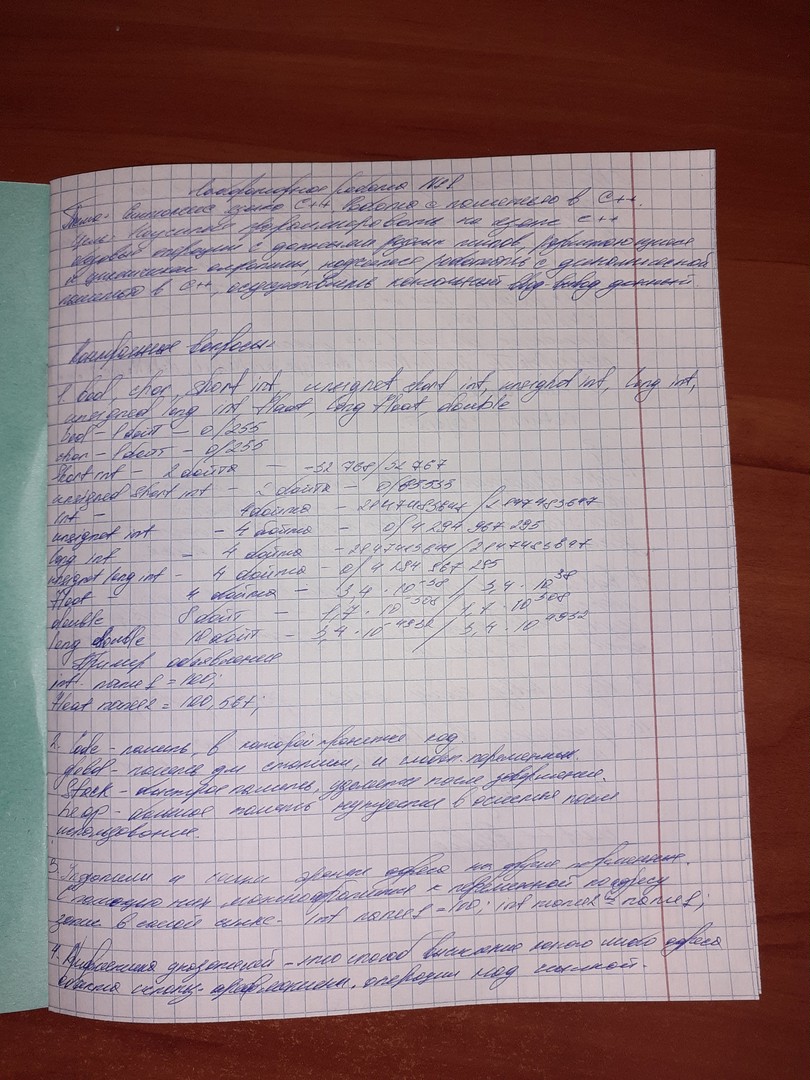 Лабораторная работа №28
Тема: Синтаксис языка C++. Работа с памятью в C++.
Цель: Научиться программировать на языке C++
операции с данными разных типов,
и циклические алгоритмы, научиться работать с динамической
памятью в C++, осуществлять консольный ввод вывод данных
Контрольные вопросы:
1. bool, char, short int, unsignet short int, unsignet int, long int,
unsigned long int, float, long float, double
bool - 1 байт - 0/255
char - 1 байт - 0/255
Short int - 2 байта - -32 768/32 767
unsigned short int - 2 байта - 0/65535
int - 4 байта - -2147483648 / 2147483647
unsignet int - 4 байта - 0/4 294 967 295
long int - 4 байта - -2147483648 / 2147483647
unsignet long int - 4 байта - 0/4 294 967 295
float - 4 байта - 3,4 · 10^-38 / 3,4 · 10^38
double 8 байт - 1,7 · 10^-308 / 1,7 · 10^308
long double 10 байт - 3,4 · 10^-4932 / 3,4 · 10^4932
Пример объявления
int name1 = 100;
float name2 = 100,567;
2. Code - память, в которой хранится код
global - память для статич, и глобал. переменных.
Stack - быстрая память, удаляется после завершения.
heap - большая память нуждается в очистке после
использования.
3. Указатели и ссылки хранят адреса на другие переменные.
С помощью них можно обратиться к переменной по адресу
в самой int name1 = 100; int name2 = name1;
4. Арифметика указателей - это способ вычисления какого либо адреса
объекта арифметич. операций над ссылкой.